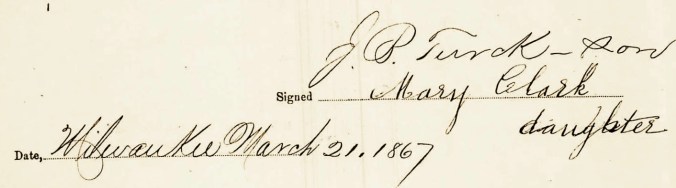 J. P. Turck - son
Signed Mary Clark
daughter
Date, Milwaukee March 21. 1867